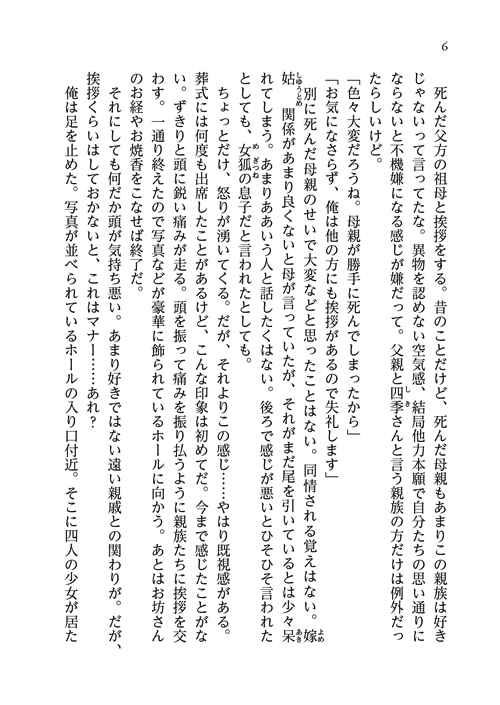 6
死んだ父方の祖母と挨拶をする。昔のことだけど、死んだ母親もあまりこの親族は好き
じゃないって言ってたな。異物を認めない空気感、結局他力本願で自分たちの思い通りに
ならないと不機嫌になる感じが嫌だって。父親と四季さんと言う親族の方だけは例外だっ
たらしいけど。
「色々大変だろうね。母親が勝手に死んでしまったから」
「お気になさらず、俺は他の方にも挨拶があるので失礼します」
別に死んだ母親のせいで大変などと思ったことはない。同情される覚えはない。嫁
姑　関係があまり良くないと母が言っていたが、それがまだ尾を引いているとは少々呆
れてしまう。あまりああいう人と話したくはない。後ろで感じが悪いとひそひそ言われた
としても、女狐の息子だと言われたとしても。
ちょっとだけ、怒りが湧いてくる。だが、それよりこの感じ……やはり既視感がある。
葬式には何度も出席したことがあるけど、こんな印象は初めてだ。今まで感じたことがな
い。ずきりと頭に鋭い痛みが走る。頭を振って痛みを振り払うように親族たちに挨拶を交
わす。一通り終えたので写真などが豪華に飾られているホールに向かう。あとはお坊さん
のお経やお焼香をこなせば終了だ。
それにしても何だか頭が気持ち悪い。あまり好きではない遠い親戚との関わりが。だが、
挨拶くらいはしておかないと、これはマナー……あれ？
俺は足を止めた。写真が並べられているホールの入り口付近。そこに四人の少女が居た